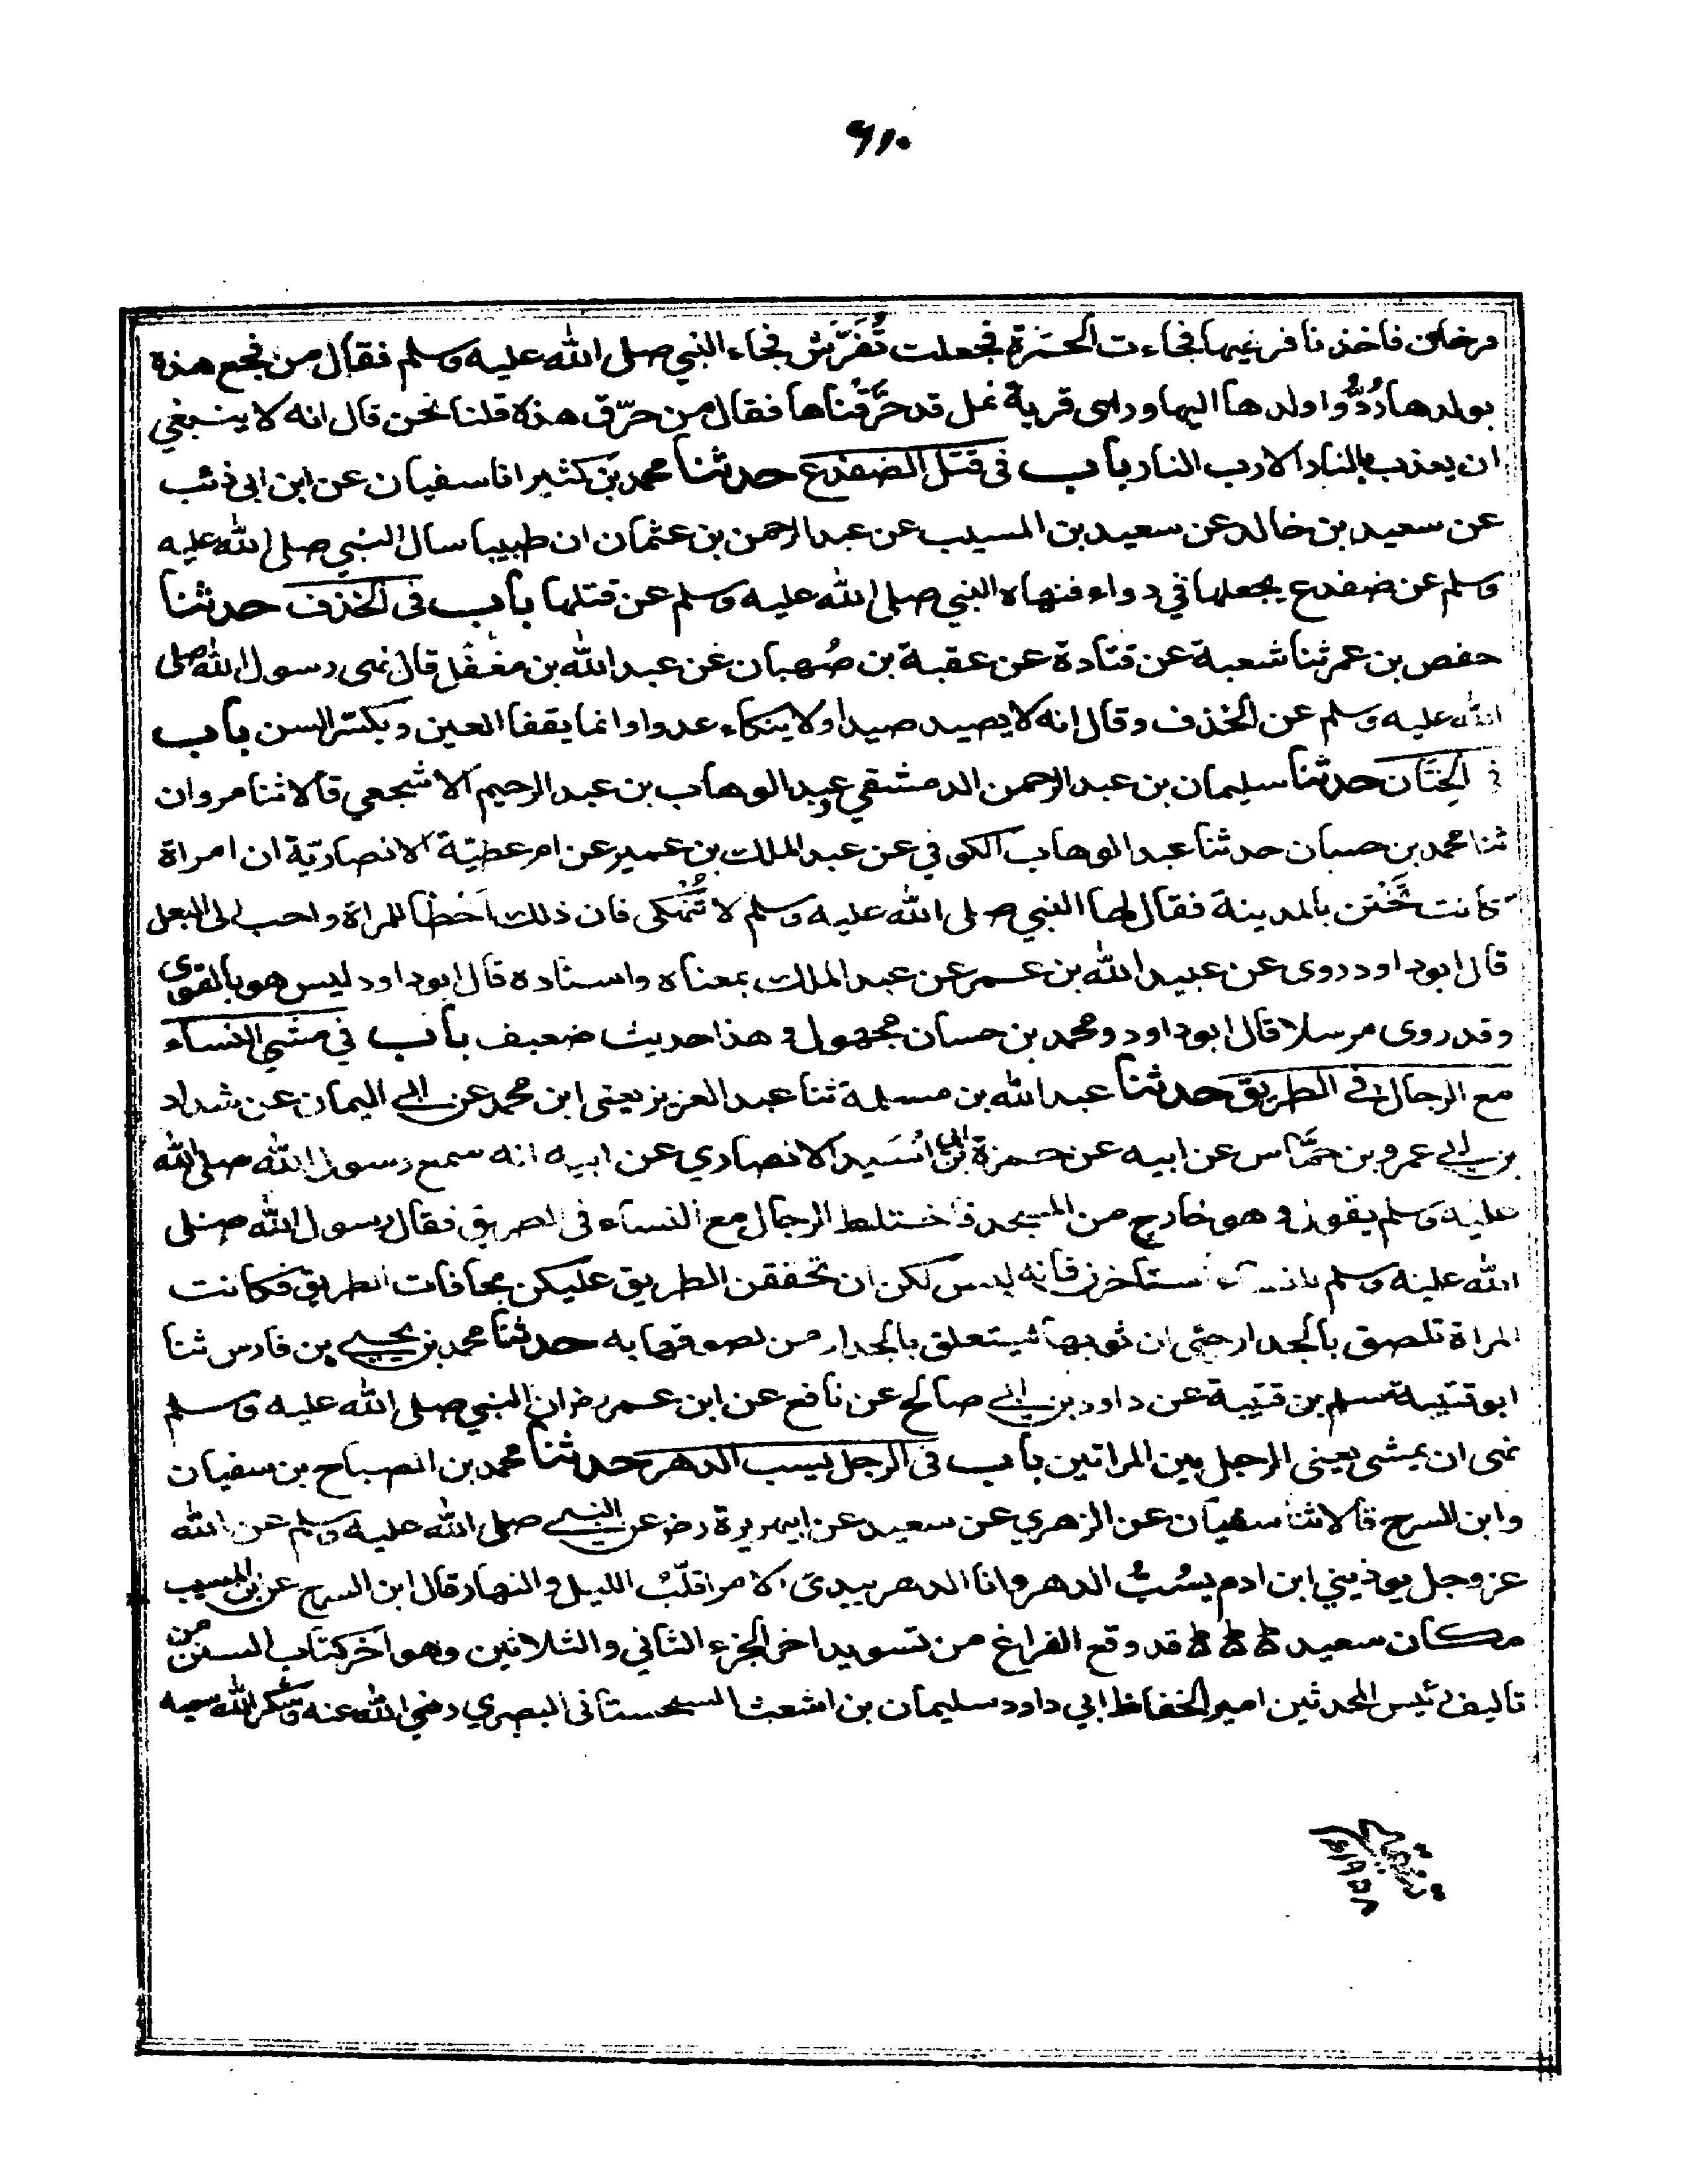 ٦١٠
فرخان فاخذنا فرخيها فجاءت الحمّرة فجعلت تُفَرِّش فجاء النبي صلى الله عليه وسلم فقال من فجع هذه
بولدها رُدُّوا ولدها اليها وراى قرية نمل قد حَرَّقْناها فقال من حرّق هذه قلنا نحن قال انه لا ينبغي
ان يعذب بالنار الا رب النار باب في قتل الضفدع حدثنا محمد بن كثير انا سفيان عن ابن ابي ذئب
عن سعيد بن خالد عن سعيد بن المسيب عن عبد الرحمن بن عثمان ان طبيبا سال النبي صلى الله عليه
وسلم عن ضفدع يجعلها في دواء فنهاه النبي صلى الله عليه وسلم عن قتلها باب في الخذف حدثنا
حفص بن عمر ثنا شعبة عن قتادة عن عقبة بن صُهبان عن عبد الله بن مغفل قال نهى رسول الله صلى
الله عليه وسلم عن الخذف وقال انه لا يصيد صيدا ولا ينكاء عدوا وانما يفقا العين ويكسر السن باب
في الختان حدثنا سليمان بن عبد الرحمن الدمشقي وعبد الوهاب بن عبد الرحيم الاشجعي قالا ثنا مروان
ثنا محمد بن حسان حدثنا عبد الوهاب الكوفي عن عبد الملك بن عمير عن ام عطيّة الانصاريّة ان امراة
كانت تَخْتن بالمدينة فقال لها النبي صلى الله عليه وسلم لا تُنْهِكى فان ذلك اَحْظا للمراة واحب الى البعل
قال ابوداود روى عن عبيد الله بن عمرو عن عبد الملك بمعناه واسناده قال ابوداود ليس هو بالقوى
وقد روى مرسلا قال ابوداود ومحمد بن حسان مجهول و هذا حديث ضعيف باب في مشي النساء
مع الرجال في الطريق حدثنا عبد الله بن مسلمة ثنا عبد العزيز يعني ابن محمد عن ابي اليمان عن شداد
بن ابي عمرو بن حَمَّاس عن ابيه عن حمزة بن ابي اُسَيد الانصاري عن ابيه انه سمع رسول الله صلى الله
عليه وسلم يقول و هو خارج من المسجد فاختلط الرجال مع النساء في الطريق فقال رسول الله صلى
الله عليه وسلم للنساء استاخرن فانه ليس لكن ان تحققن الطريق عليكن بحافات الطريق فكانت
المراة تلصق بالجدار حتى ان ثوبها ليتعلق بالجدار من لصوقها به حدثنا محمد بن يحيى بن فارس ثنا
ابو قتيبة سلم بن قتيبة عن داود بن ابي صالح عن نافع عن ابن عمر رض ان النبي صلى الله عليه وسلم
نهى ان يمشى يعني الرجل بين المراتين باب في الرجل يسب الدهر حدثنا محمد بن الصباح بن سفيان
وابن السرح قالا ثنا سفيان عن الزهري عن سعيد عن ابي هريرة رض عن النبي صلى الله عليه وسلم عن الله
عز وجل يوذيني ابن ادم يسُبُّ الدهر وانا الدهر بيدى الامر اقلّبُ الليل والنهار قال ابن السرح عن ابن المسيب
مكان سعيد قد وقع الفراغ من تسويد اخر الجزء الثاني والثلاثين وهو اخر كتاب السنن من
تاليف رئيس المحدثين امير الحفاظ ابي داود سليمان بن اشعث السجستانى البصري رضي الله عنه وشكر الله سعيه